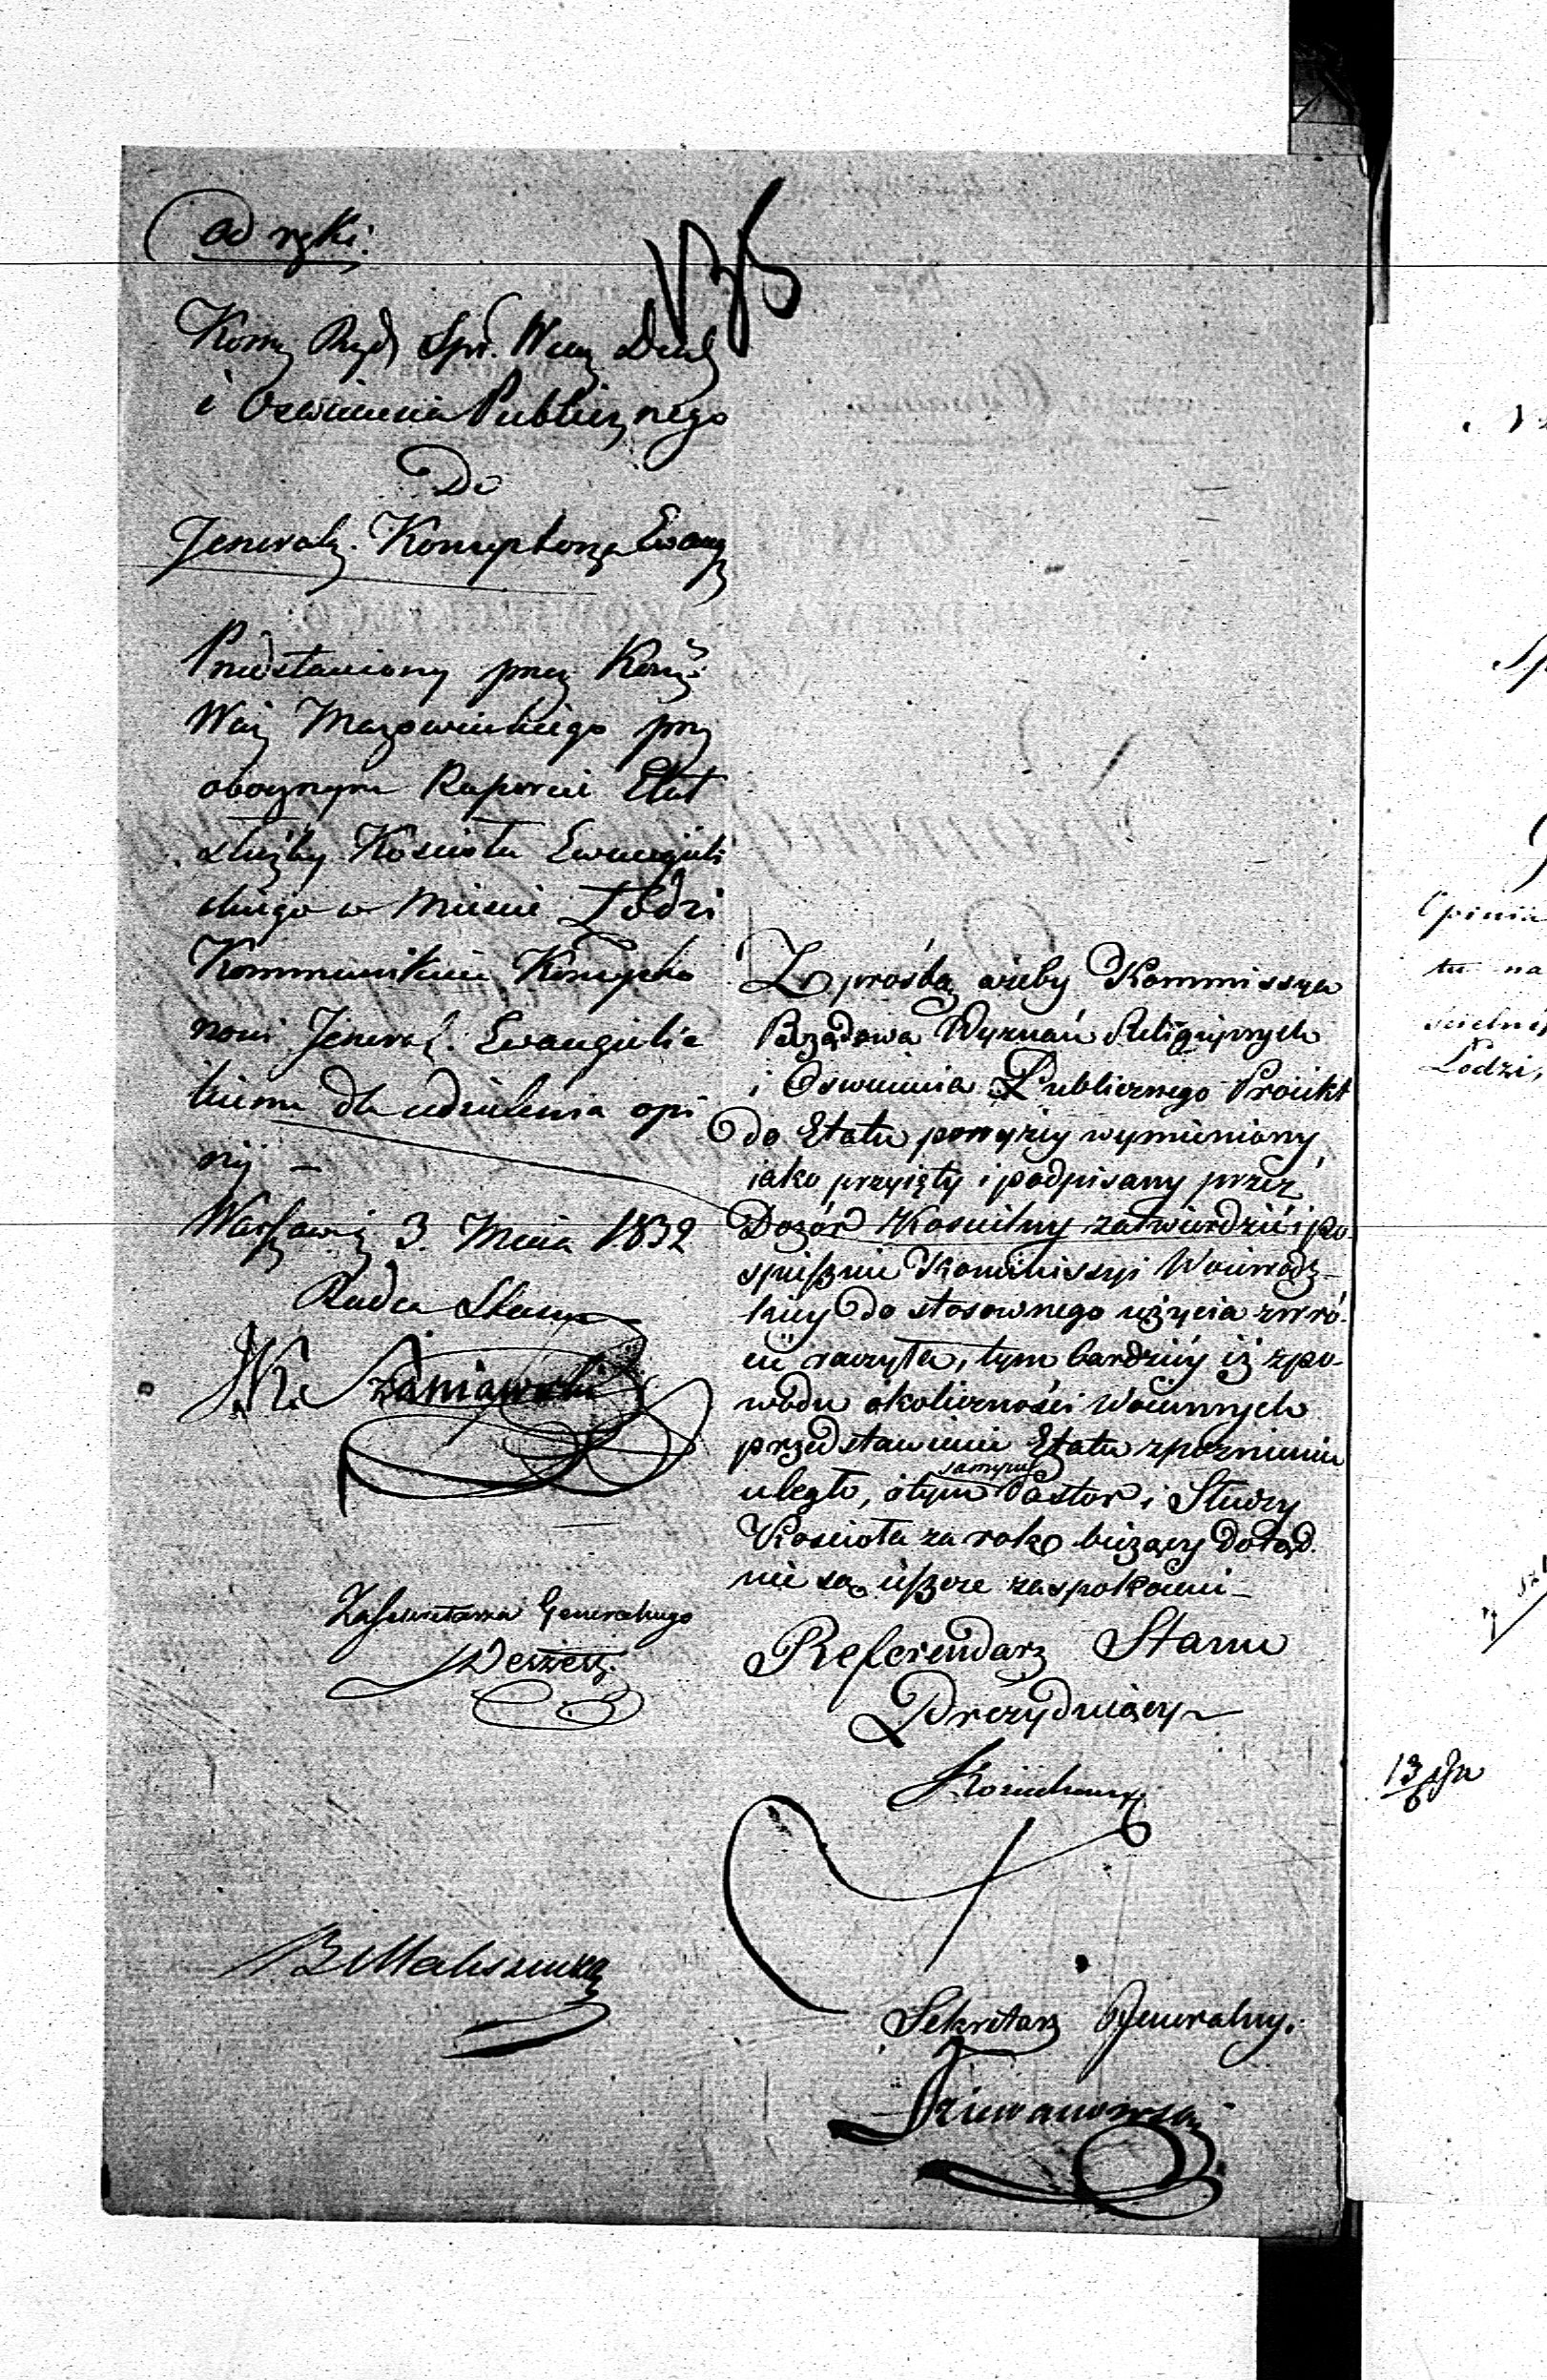 ad ręki.
Komy Rząd Spr. Wew Duch
i Oswiecenia Publicznego
Do
Jeneraly. Konsystorza Ewang
Przedstawiony przez Kom:
Woj Mazowieckiego przy
obocznym Raporcie Etat
służby Kościoła Ewangieli
ckiego w Mieście Łodzi
Kommunikuie Konsysto
rzowi Jeneral. Ewangielic
kiemu dla udzielenia opi
nij —
Warszawie 3. Maia 1832
Radca Stanu
Szaniawski
Za Sekretarza Generalnego
Z prośbą ażeby Kommissya
Rządowa Wyznań Religijnych
i Oswiecenia Publicznego Proiekt
do Etatu powyżey wymieniony,
iako przyięty i podpisany przez
Dozór Kościelny zatwierdzić i po-
spiesznie Kommissyi Woiewódz-
kiey do stosownego użycia zwró-
cić raczyła, tym bardziey iż z po-
wodu okoliczności Woiennych
przedstawienie Etatu zpoznieniu
uległo, a tym samym Pastor i Słudzy
Kościoła za rok bieżący dotąd
nie są ieszcze zaspokoieni —
Referendarz Stanu
Prezyduiący
Sekretarz Jeneralny.
Dziewanowski
Opinia
tu na
Łodzi,